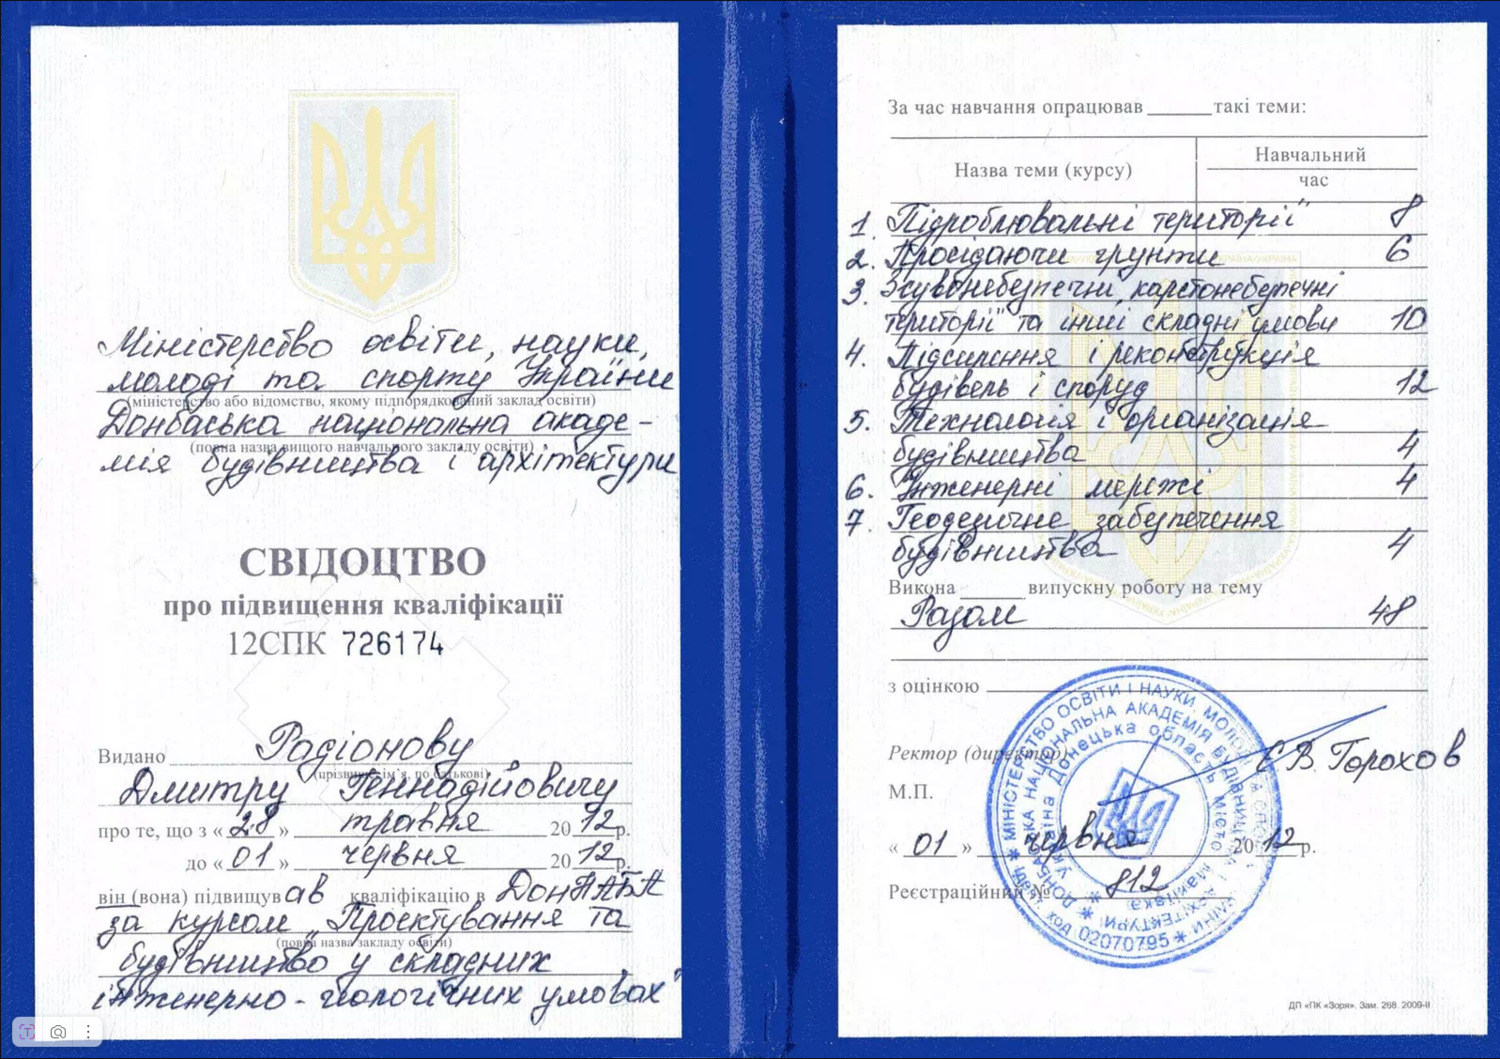 Міністерство освіти, науки,
молоді та спорту України
(міністерство або відомство, якому підпорядкований заклад освіти)
Донбаська національна акаде-
(повна назва вищого навчального закладу освіти)
мія будівництва і архітектури
СВІДОЦТВО
про підвищення кваліфікації
12СПК 726174
Видано Радіонову
(прізвище, ім'я, по батькові)
Дмитру Геннадійовичу
про те, що з « 28 » травня 20 12р.
до « 01 » червня 20 12р.
він (вона) підвищував кваліфікацію в ДонНАБА
за курсом „Проєктування та
(повна назва закладу освіти)
будівництво у складних
інженерно-геологічних умовах"
За час навчання опрацював ______ такі теми:
Назва теми (курсу) Навчальний
час
1. Підроблювальні території 8
2. Просідаючи грунти 6
3. Зсувонебезпечні, карстонебезпечні
території та інші складні умови 10
4. Підсилення і реконструкція
будівель і споруд 12
5. Технологія і організація
будівництва 4
6. Інженерні мережі 4
7. Геодезичне забезпечення
будівництва 4
Викона ______ випускну роботу на тему
Разом 48
з оцінкою
Ректор (директор) Є.В. Горохов
М.П.
« 01 » червня 20 12р.
Реєстраційний № 812
МІНІСТЕРСТВО ОСВІТИ І НАУКИ, МОЛОДІ
НАЦІОНАЛЬНА АКАДЕМІЯ БУДІВНИЦТВА І АРХІТЕКТУРИ
Україна Донецька область місто Макіївка
код 02070795
ДП «ПК «Зоря». Зам. 268. 2009-ІІ